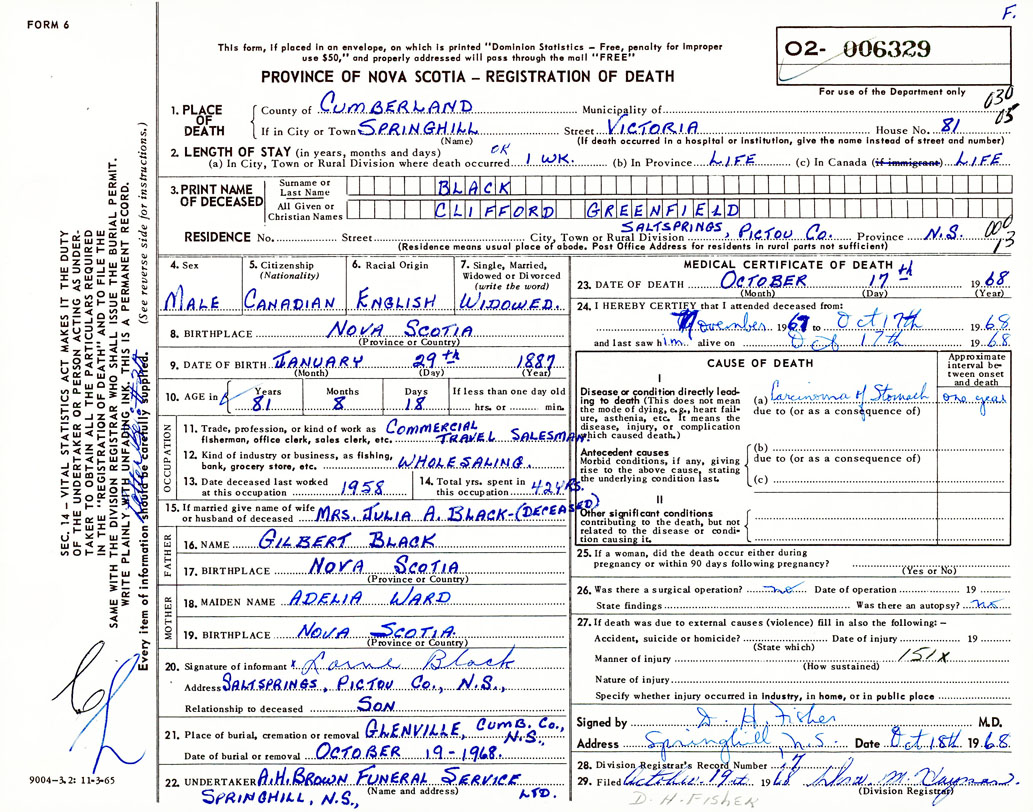 F.
FORM 6
This form, if placed in an envelope, on which is printed "Dominion Statistics – Free, penalty for improper
use $50," and properly addressed will pass through the mail "FREE"
O2- 006329
PROVINCE OF NOVA SCOTIA – REGISTRATION OF DEATH
For use of the Department only
030
05
1. PLACE OF DEATH
County of CUMBERLAND Municipality of
If in City or Town SPRINGHILL Street VICTORIA House No. 81
(Name) (If death occurred in a hospital or institution, give the name instead of street and number)
2. LENGTH OF STAY (in years, months and days) OK
(a) In City, Town or Rural Division where death occurred 1 WK. (b) In Province LIFE (c) In Canada (if immigrant) LIFE
3. PRINT NAME OF DECEASED
Surname or Last Name BLACK
All Given or Christian Names CLIFFORD GREENFIELD
RESIDENCE No. Street City, Town or Rural Division SALTSPRINGS, PICTOU CO. Province N.S.
000
13
(Residence means usual place of abode. Post Office Address for residents in rural parts not sufficient)
4. Sex MALE
5. Citizenship (Nationality) CANADIAN
6. Racial Origin ENGLISH
7. Single, Married, Widowed or Divorced (write the word) WIDOWED.
8. BIRTHPLACE NOVA SCOTIA
(Province or Country)
9. DATE OF BIRTH JANUARY 29th 1887
(Month) (Day) (Year)
10. AGE in Years 81 Months 8 Days 18 If less than one day old hrs. or min.
OCCUPATION
11. Trade, profession, or kind of work as fisherman, office clerk, sales clerk, etc. COMMERCIAL TRAVEL SALESMAN.
12. Kind of industry or business, as fishing, bank, grocery store, etc. WHOLESALING.
13. Date deceased last worked at this occupation 1958
14. Total yrs. spent in this occupation 42 YRS.
15. If married give name of wife or husband of deceased MRS. JULIA A. BLACK-(DECEASED)
FATHER
16. NAME GILBERT BLACK
17. BIRTHPLACE NOVA SCOTIA
(Province or Country)
MOTHER
18. MAIDEN NAME ADELIA WARD
19. BIRTHPLACE NOVA SCOTIA.
(Province or Country)
20. Signature of informant x Lorne Black
Address SALTSPRINGS, PICTOU CO., N.S.,
Relationship to deceased SON
21. Place of burial, cremation or removal GLENVILLE, CUMB. CO., N.S.,
Date of burial or removal OCTOBER 19-1968.
22. UNDERTAKER A.H. BROWN FUNERAL SERVICE LTD.
(Name and address)
SPRINGHILL, N.S.,
MEDICAL CERTIFICATE OF DEATH
23. DATE OF DEATH OCTOBER 17th 1968
(Month) (Day) (Year)
24. I HEREBY CERTIFY that I attended deceased from:
November 1967 to Oct 17th 1968
and last saw him. alive on Oct 17th 1968
CAUSE OF DEATH
Approximate interval between onset and death
I
Disease or condition directly leading to death (This does not mean the mode of dying, e.g., heart failure, asthenia, etc. It means the disease, injury, or complication which caused death.)
(a) Carcinoma of Stomach one year
due to (or as a consequence of)
Antecedent causes
Morbid conditions, if any, giving rise to the above cause, stating the underlying condition last.
(b)
due to (or as a consequence of)
(c)
II
Other significant conditions
contributing to the death, but not related to the disease or condition causing it.
25. If a woman, did the death occur either during
pregnancy or within 90 days following pregnancy?
(Yes or No)
26. Was there a surgical operation? no Date of operation 19
State findings Was there an autopsy? no
27. If death was due to external causes (violence) fill in also the following: –
Accident, suicide or homicide? Date of injury 19
(State which)
Manner of injury 151X
(How sustained)
Nature of injury
Specify whether injury occurred in Industry, in home, or in public place
Signed by D. H. Fisher M.D.
Address Springhill, N.S. Date Oct 18th 1968.
28. Division Registrar's Record Number 17
29. Filed October 19th 1968
(Division Registrar)
D. H. FISHER
SEC. 14 – VITAL STATISTICS ACT MAKES IT THE DUTY
OF THE UNDERTAKER OR PERSON ACTING AS UNDER-
TAKER TO OBTAIN ALL THE PARTICULARS REQUIRED
IN THE "REGISTRATION OF DEATH" AND TO FILE THE
SAME WITH THE DIVISION REGISTRAR WHO SHALL ISSUE THE BURIAL PERMIT.
WRITE PLAINLY WITH UNFADING INK. THIS IS A PERMANENT RECORD.
Every item of information should be carefully supplied. (See reverse side for instructions.)
9004-3.2: 11-3-65